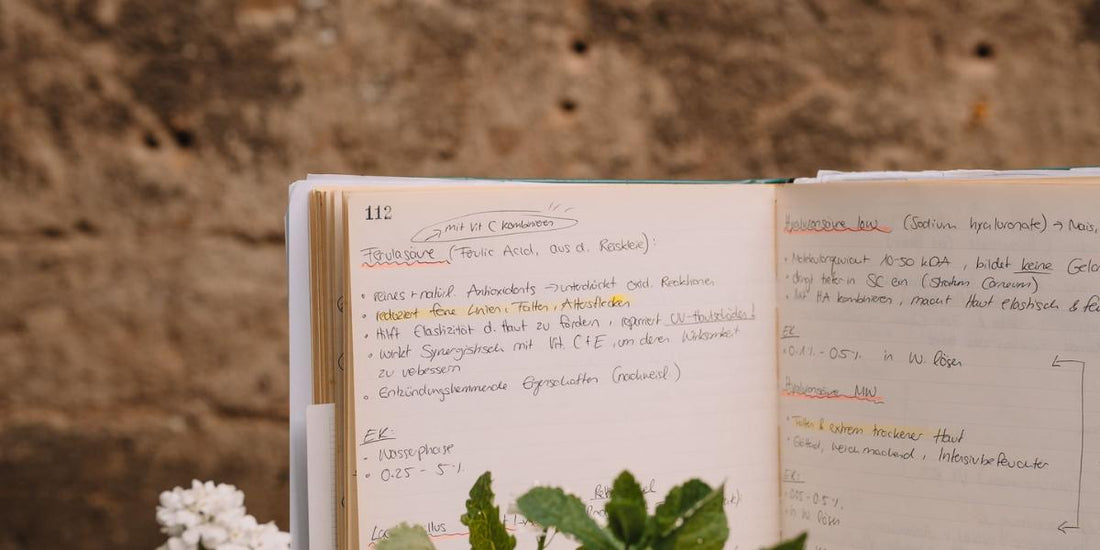 112
→ mit Vit C kombinieren
Ferulasäure (Ferulic Acid, aus d. Reiskleie):
• reines + natürl. Antioxidants → unterdrückt oxid. Reaktionen
• reduziert feine Linien, Falten, Altersflecken
• Hilft Elastizität d. Haut zu fördern, repariert UV-Hautschäden!
• wirkt Synergistisch mit Vit. C+E, um deren Wirksamkeit
zu verbessern
• Entzündungshemmende Eigenschaften (nachweisl.)
EK:
- Wasserphase
• 0.25 - 5%
Hyaluronsäure low (Sodium hyaluronate) → Mais,
• Molekulargewicht 10-50 kDA, bildet keine
• dringt tiefer in SC ein (Stratum Corneum)
HA kombinieren, macht Haut elastisch &
EK
• 0.1% - 0.5% in W. lösen
Hyaluronsäure MW
• Falten & extrem trockener Haut
weichmachend, Intensivbefeuchter
EK:
0.5%
in W. lösen